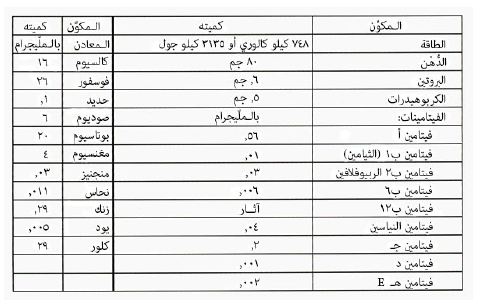 المكوّن كميته المكوّن كميته
الطاقة ٧٤٨ كيلو كالوري أو ٣١٣٥ كيلو جول المعادن بالملّيجرام
الدُّهن ٨٠ جم كالسيوم ١٦
البروتين ٦, جم فوسفور ٢٦
الكربوهيدرات ٥, جم حديد ١,
الفيتامينات: بالملّيجرام صوديوم ٦
فيتامين أ ٥٦, بوتاسيوم ٢٠
فيتامين ب١ (الثيامين) ٠١, مغنسيوم ٤
فيتامين ب٢ الريبوفلافين ٠٣, منجنيز ٠٣,
فيتامين ب٦ ٠٠٦, نحاس ٠١١,
فيتامين ب١٢ آثـار زنك ٢٩,
فيتامين النياسين ٠٤, يود ٠٠٥,
فيتامين جـ ٢, كلور ٢٩
فيتامين د ٠٠١,
فيتامين هـ E ٠٠٢,